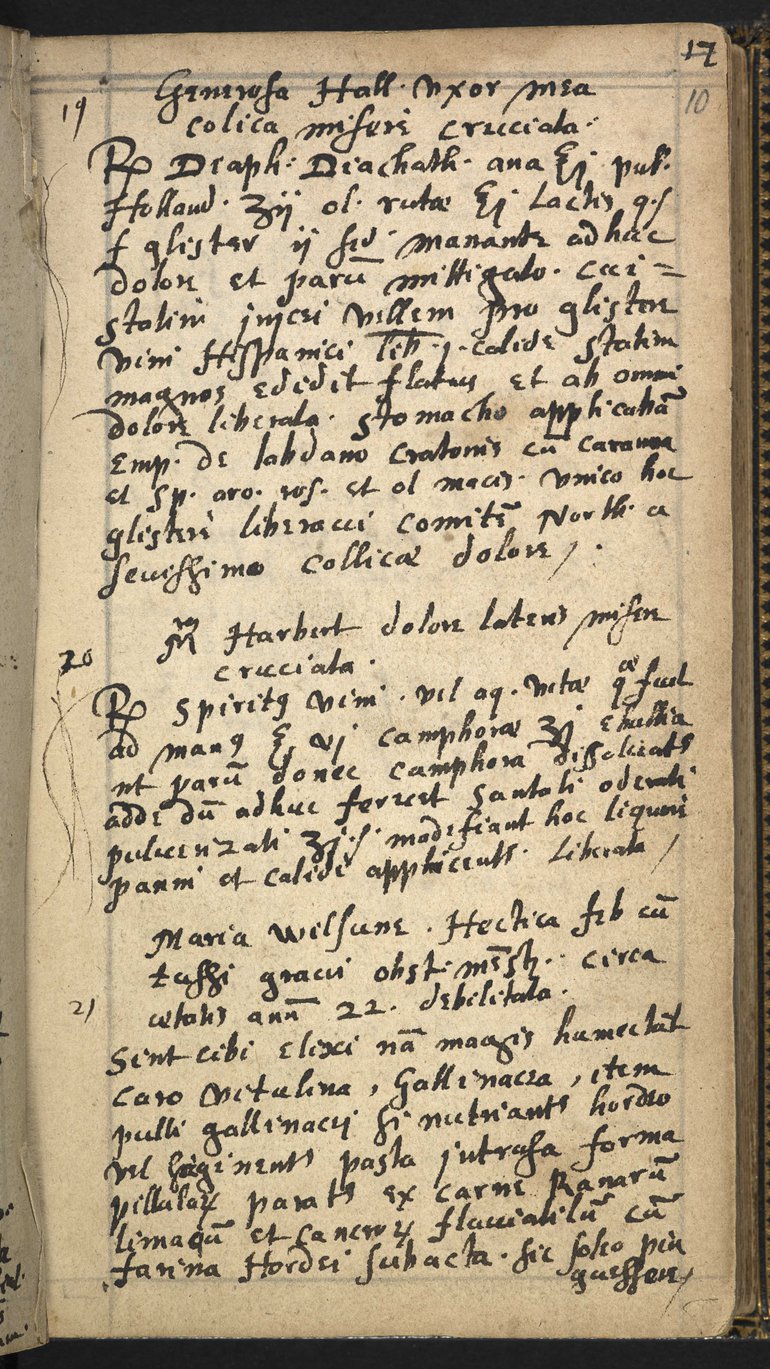 17
10
19 Generosa Hall. uxor mea
colica miserè cruciata.
℞ Diaph. Diacath. ana ℥j pul.
Holland. ʒij ol. rutæ ℥j Lactis q.s
f glister ij sed manante adhuc
dolore et parū mittigato.
statim injici vellem pro glistere
vini Hispanici lib. j. calide statim
magnos edidit flatus et ab omni
dolore liberata. stomacho applicabā
Emp. de labdano Cratonis cū caranna
et sp. aro. ros. et ol macis. unico hoc
glistere liberavi Comitē North. a
sevissimo collicæ dolore /.
20 Mrs Harbert dolore lateris misere
cruciata.
℞ Spiritꝰ vini. vel aq. vitæ q̄ sunt
ad manꝰ ℥ vj camphoræ ʒj ebullia
nt parū donec camphora dissolvatr
adde dū adhuc fervet santali odorati
pulverizati ʒj.s madefiant hoc liquori
panni et calide applicentr. Liberata /
Maria Wilsune. Hectica feb cū
tussi gravi obst. mēs. circa
21 ætatis anū 22. debilitata.
Sint cibi elixi nā magis humectāt
Caro vitulina, Gallinacea, item
pulli gallinacij si nutriantr hordeo
vel saginentr pasta intrusa forma
pillularū paratr ex carne Ranarū
limacū et cancrorū fluviatilū cū
farina Hordei subacta. sic soleo pin
guessere /